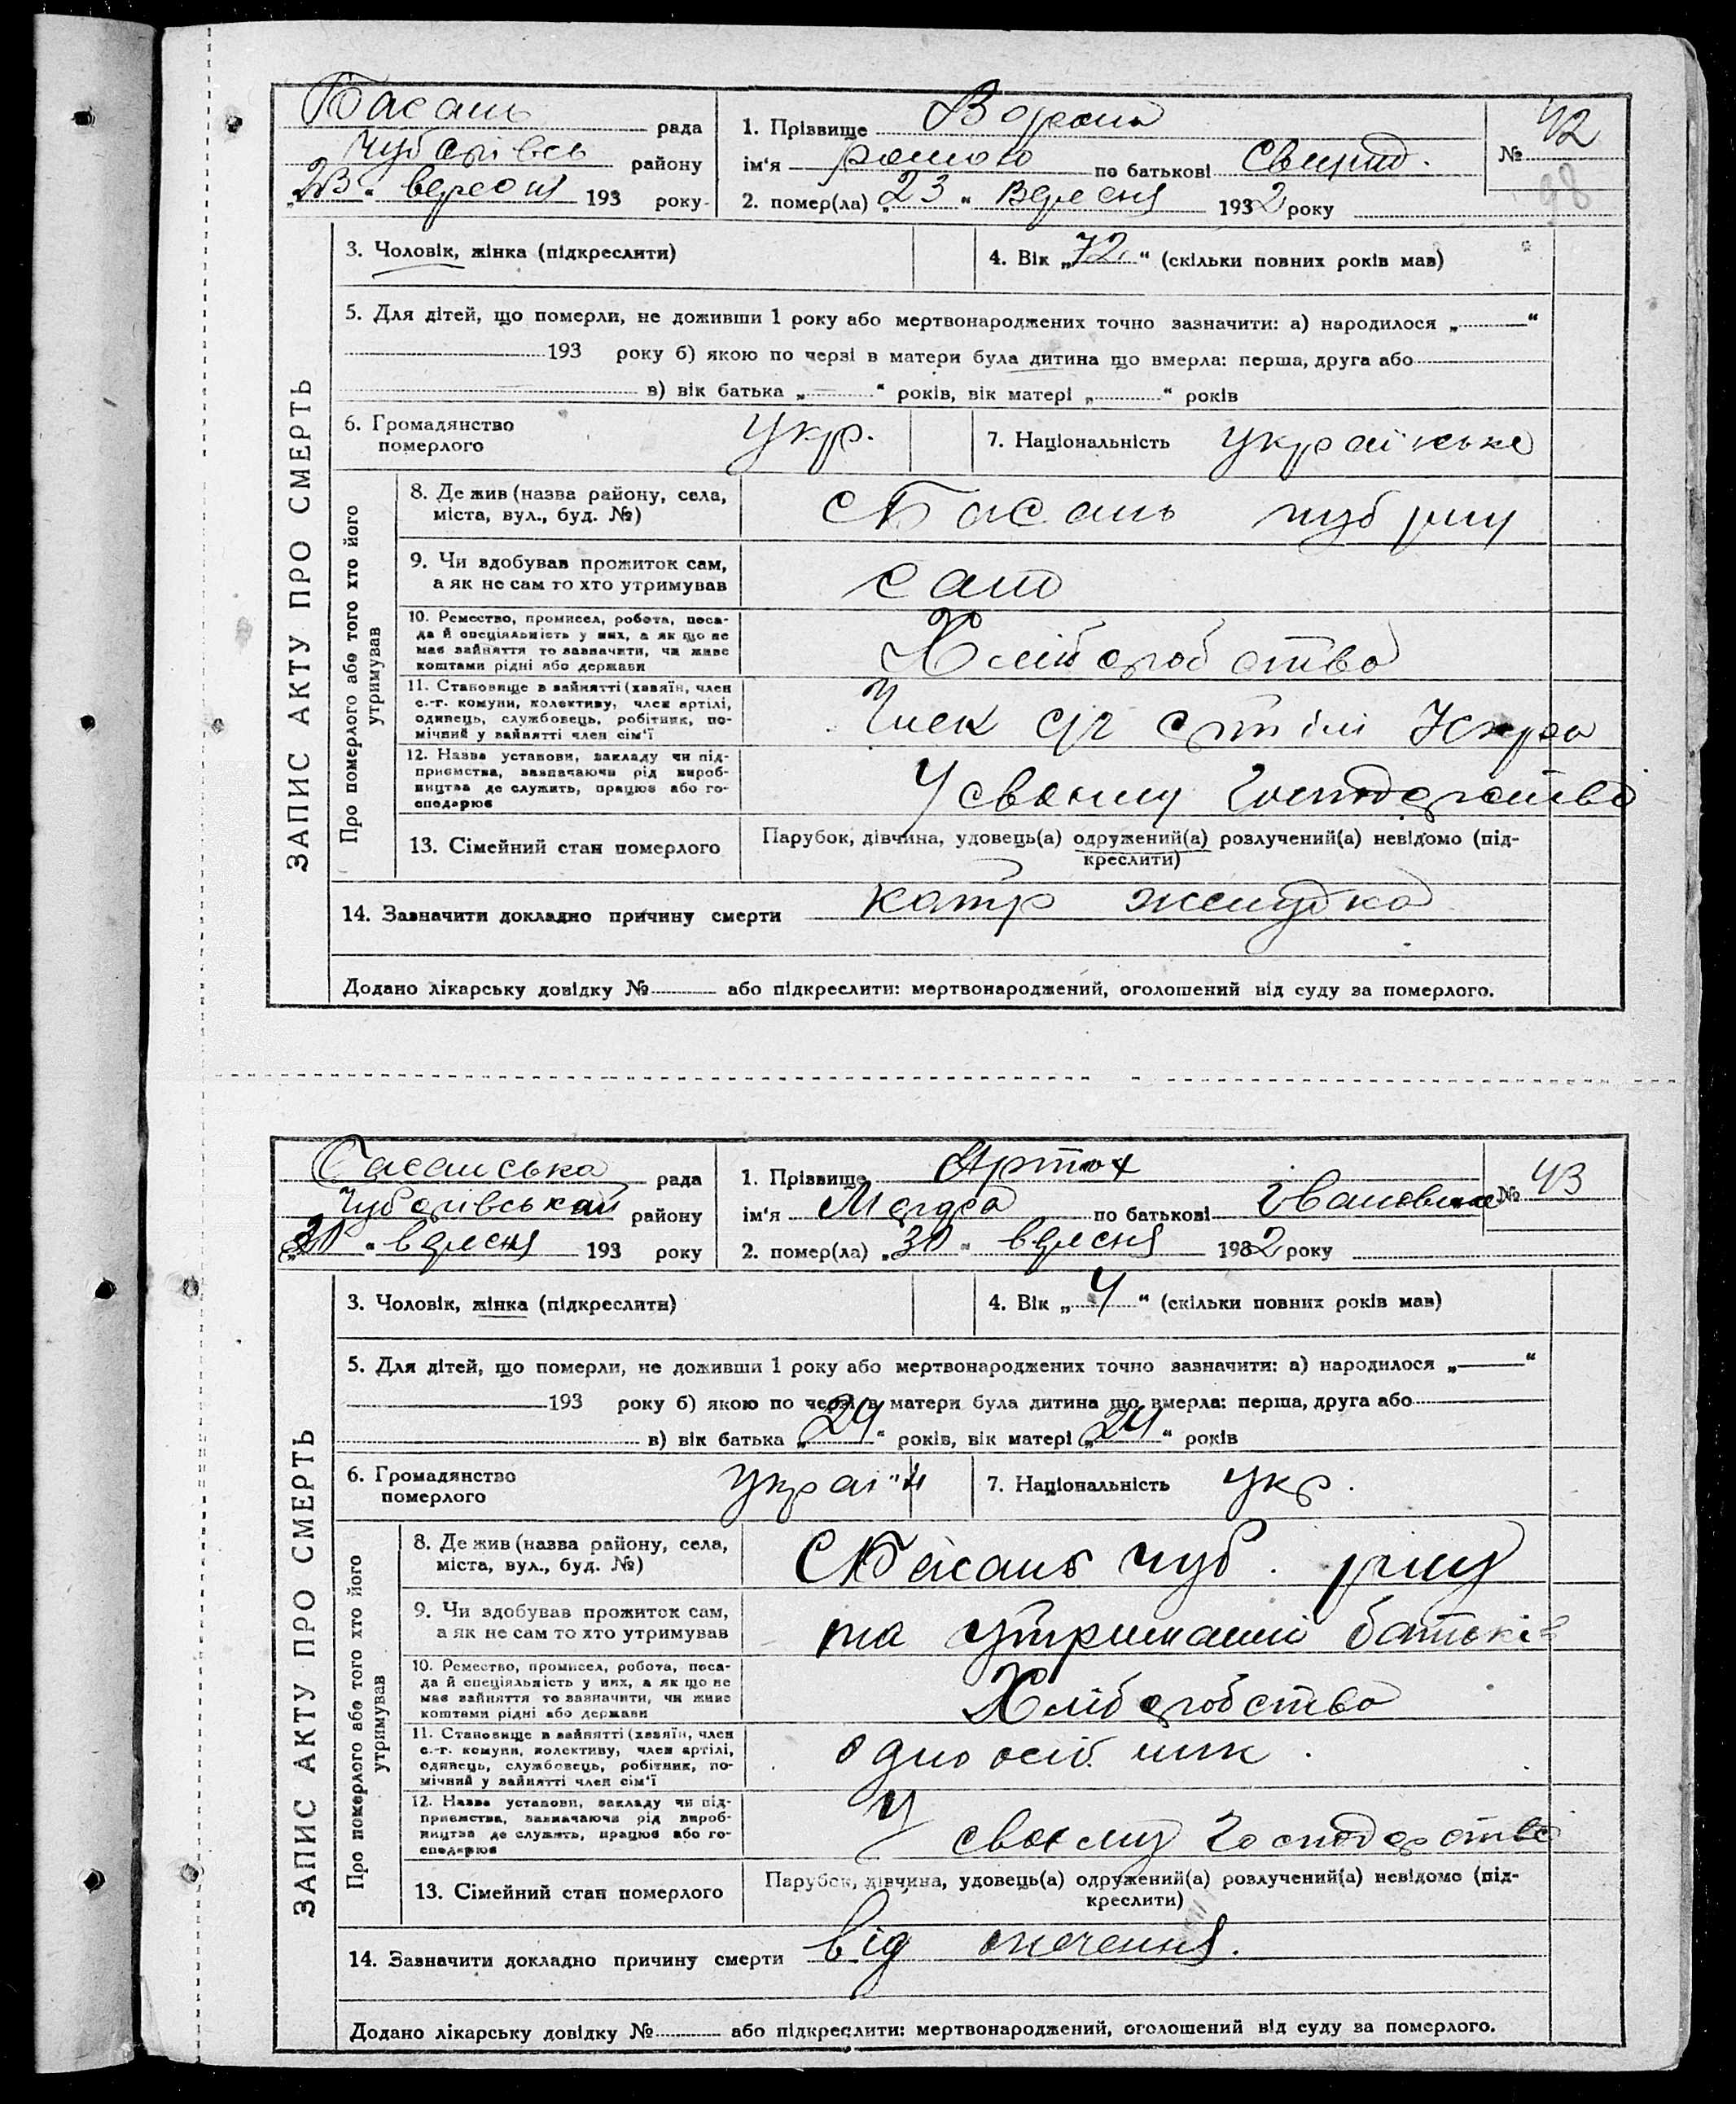 ЗАПИС АКТУ ПРО СМЕРТЬ
Басань рада
Чубарівсь району
„23“ вересня 193 року
1. Прізвище Ворона
ім'я по батькові Свирид.
2. помер(ла) „23“ Вересня 1932 року
№ 42
98
3. Чоловік, жінка (підкреслити)
4. Вік „72“ (скільки повних років мав)
5. Для дітей, що померли, не доживши 1 року або мертвонароджених точно зазначити: а) народилося „ “
193 року б) якою по черзі в матери була дитина що вмерла: перша, друга або
в) вік батька „ “ років, вік матері „ “ років
6. Громадянство померлого укр.
7. Національність українське
Про померлого або того хто його утримував
8. Де жив (назва району, села,
міста, вул., буд. №)
с Басань чуб р-ну
9. Чи здобував прожиток сам,
а як не сам то хто утримував
сам
10. Ремество, промисел, робота, поса-
да й спеціяльність у них, а як що не
має зайняття то зазначити, чи живе
коштами рідні або держави
Хліборобство
11. Становище в зайнятті (хазяїн, член
с.-г. комуни, колективу, член артілі,
одинець, службовець, робітник, по-
мічний у зайнятті член сім'ї
Член с/г артілі Іскра
12. Назва установи, закладу чи під-
приємства, зазначаючи рід вироб-
ництва де служить, працює або го-
сподарює
У своєму господарстві
13. Сімейний стан померлого
Парубок, дівчина, удовець(а) одружений(а) розлучений(а) невідомо (під-
креслити)
14. Зазначити докладно причину смерти катр желудка
Додано лікарську довідку № або підкреслити: мертвонароджений, оголошений від суду за померлого.
ЗАПИС АКТУ ПРО СМЕРТЬ
Басанська рада
Чубарівський району
„30“ вересня 193 року
1. Прізвище Артюх
ім'я по батькові Івановна
2. помер(ла) „30“ вересня 1932 року
№ 43
3. Чоловік, жінка (підкреслити)
4. Вік „4“ (скільки повних років мав)
5. Для дітей, що померли, не доживши 1 року або мертвонароджених точно зазначити: а) народилося „ “
193 року б) якою по черзі в матери була дитина що вмерла: перша, друга або
в) вік батька „24“ років, вік матері „24“ років
6. Громадянство померлого україн
7. Національність укр.
Про померлого або того хто його утримував
8. Де жив (назва району, села,
міста, вул., буд. №)
с Басань чуб. р-ну
9. Чи здобував прожиток сам,
а як не сам то хто утримував
на утриманні батьків
10. Ремество, промисел, робота, поса-
да й спеціяльність у них, а як що не
має зайняття то зазначити, чи живе
коштами рідні або держави
Хліборобство
11. Становище в зайнятті (хазяїн, член
с.-г. комуни, колективу, член артілі,
одинець, службовець, робітник, по-
мічний у зайнятті член сім'ї
одноосібник.
12. Назва установи, закладу чи під-
приємства, зазначаючи рід вироб-
ництва де служить, працює або го-
сподарює
У своєму господарстві
13. Сімейний стан померлого
Парубок, дівчина, удовець(а) одружений(а) розлучений(а) невідомо (під-
креслити)
14. Зазначити докладно причину смерти від опечення.
Додано лікарську довідку № або підкреслити: мертвонароджений, оголошений від суду за померлого.